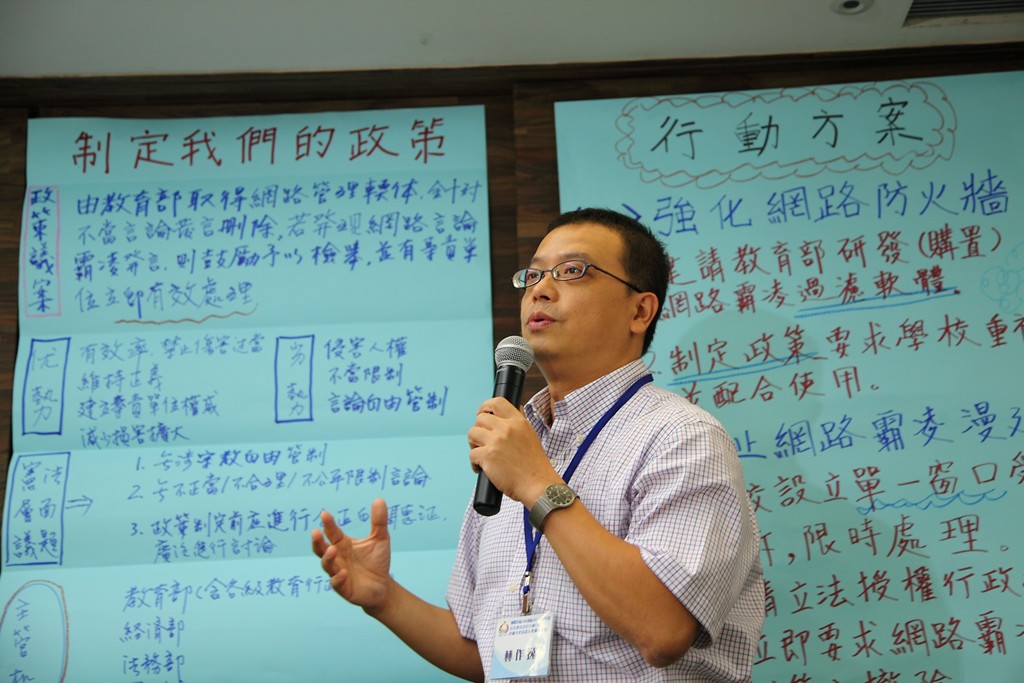 制定我們的政策
政策議案
由教育部取得網路管理軟体,針對
不當言論發言刪除,若發現網路言論
霸凌發言,則鼓勵予以檢舉,並有專責單
位立即有效處理
优勢
有效率,禁止傷害过當
維持正義
建立專責單位權威
減少損害擴大
劣勢
侵害人權
不當限制
言論自由管制
憲法層面議題
1. 
2. 不正當/不合理/不公平限制言論
3. 政策制定前應進行公正的
廣泛進行討論
主管机
教育部(含各級教育行
經濟部
法務部
行動方案
強化網路防火牆
建請教育部研發(購置)
網路霸凌過濾軟體。
制定政策要求學校重視
並配合使用。
止網路霸凌漫
校設立單一窗口受
,限時處理。
請立法授權行政
立即要求網路霸
林作